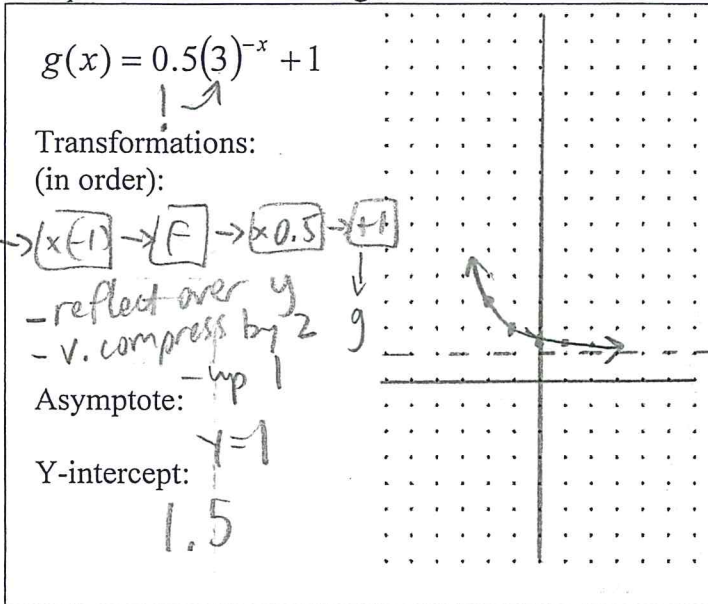 g(x) = 0.5(3)^{-x} + 1
Transformations:
(in order):
→ [x(-1)] → [F] → [x0.5] → [+1]
↓
g
- reflect over y
- v. compress by 2
- up 1
Asymptote:
y=1
Y-intercept:
1.5